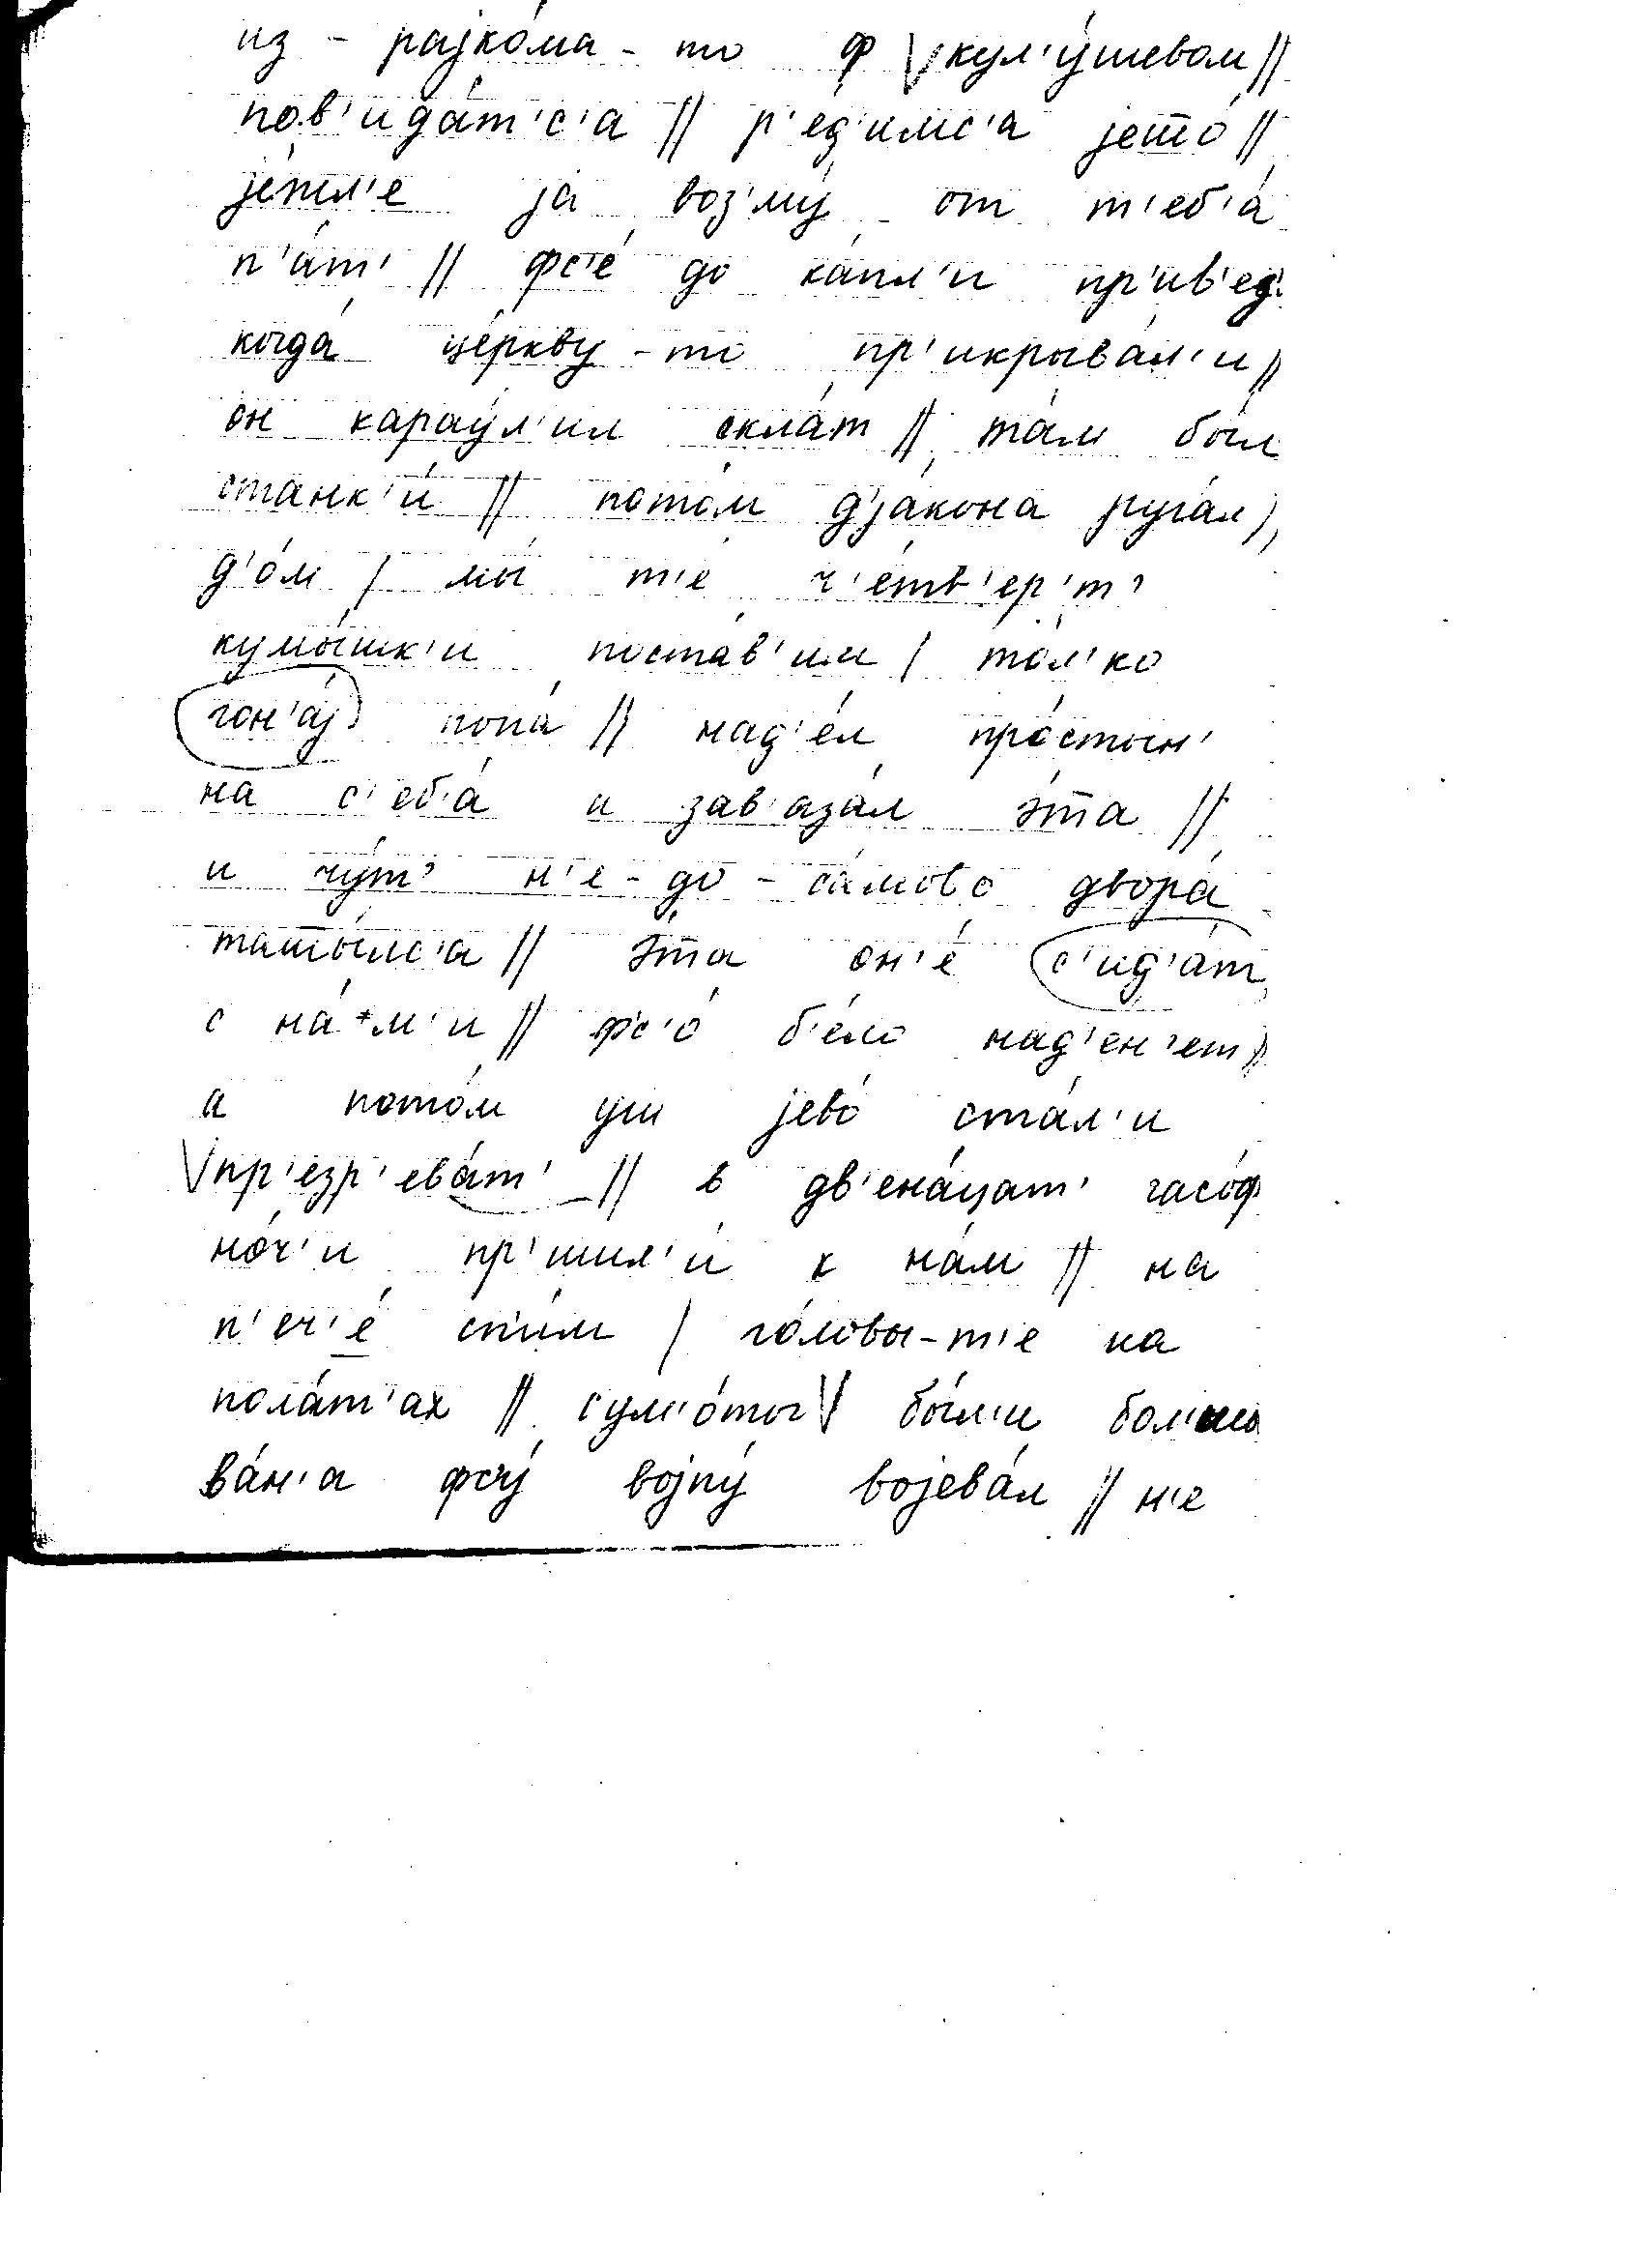 из - рајко́ма - то ф \/ кул'у́шевом //
пов'ида́т'с'а // р'ед'имс'а јето́ //
је́тл'е ја воз'му́ от т'еб'а́
п'а́т' // фс'е́ до ка́пл'и пр'ив'ед'
когда́ це́ркву - то пр'икрыва́л'и //
он карау́л'ил скла́т // та́м бы́л
станк'и́ // пото́м д'ја́кона руга́л //
д'о́м / мы́ т'е че́тв'ер'т'
кумы́шк'и поста́в'им / то́л'ко
гон'а́ј попа́ // над'е́л про́стын'
на с'еб'а́ и зав'аза́л э́та //
и чу́т' н'е - до - са́мово двора́
ташы́лс'а // э́та он'е́ с'ид'а́т
с на́м'и // фс'о́ б'е́ло над'ен'ет //
а пото́м уш јево́ ста́л'и
\/ пр'езр'ева́т' // в дв'ена́цат' часо́ф
но́ч'и пр'ишл'и́ к на́м // на
п'еч'е́ сп'и́м / го́ловы-т'е на
пола́т'ах // сум'о́ты \/ бы́л'и бол'шы
ва́н'а фс'у́ војну́ војева́л // н'е